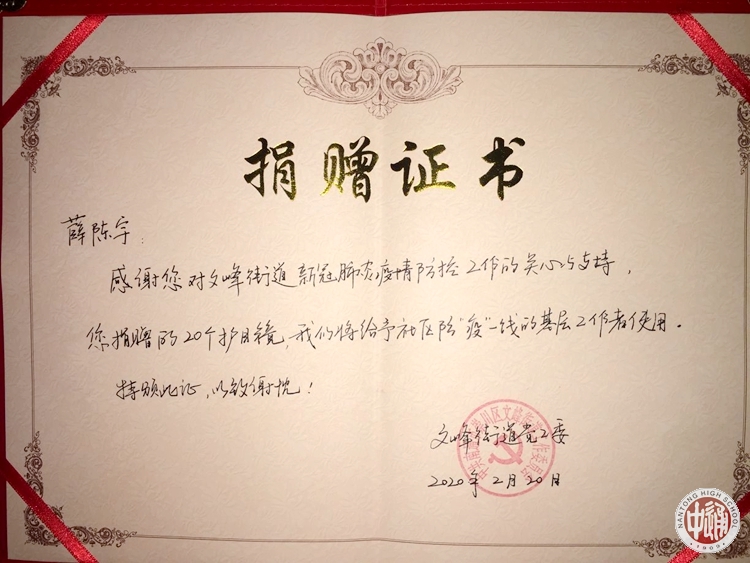 捐赠证书
薛陈宇：
感谢您对文峰街道新冠肺炎疫情防控工作的关心与支持，
您捐赠的20个护目镜，我们将给予社区防“疫”一线的基层工作者使用。
特颁此证，以致谢忱！
文峰街道党工委
2020年2月20日
NANTONG HIGH SCHOOL
中通
1909